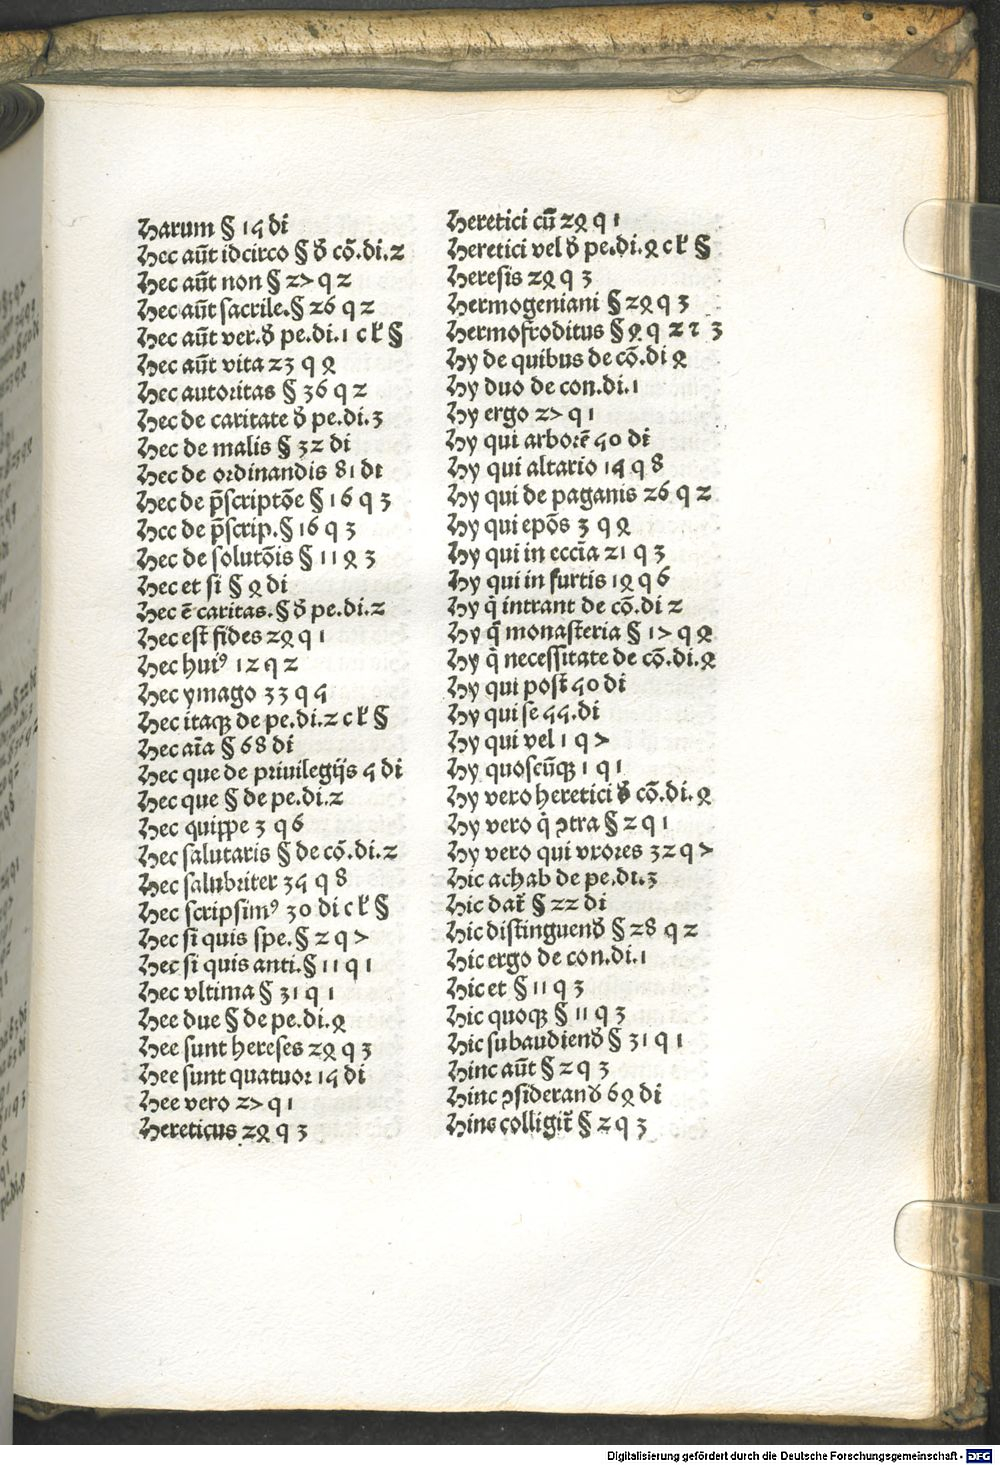 Harum § 14 di
Hec aūt idcirco § ꝺ̄ cō.di.2
Hec aūt non § 27 q 2
Hec aūt sacrile.§ 26 q 2
Hec aūt ver.ꝺ̄ pe.di.1 c ꝉr §
Hec aūt vita 23 q 9
Hec autoritas § 36 q 2
Hec de caritate ꝺ̄ pe.di.3
Hec de malis § 32 di
Hec de ordinandis 81 di
Hec de p̄scriptōe § 16 q 3
Hec de p̄scrip.§ 16 q 3
Hec de solutōis § 11 q 3
Hec et si § 9 di
Hec ē caritas.§ ꝺ̄ pe.di.2
Hec est fides 24 q 1
Hec huiꝰ 12 q 2
Hec ymago 33 q 4
Hec itaqꝫ de pe.di.2 c ꝉr §
Hec aīa § 68 di
Hec que de priuilegijs 4 di
Hec que § de pe.di.2
Hec quippe 3 q 6
Hec salutaris § de cō.di.2
Hec salubriter 34 q 8
Hec scripsimꝰ 30 di c ꝉr §
Hec si quis spe.§ 2 q 7
Hec si quis anti.§ 11 q 1
Hec vltima § 31 q 1
Hee due § de pe.di.9
Hee sunt hereses 29 q 3
Hee sunt quatuor 14 di
Hee vero 27 q 1
Hereticus 29 q 3
Heretici cū 29 q 1
Heretici vel ꝺ̄ pe.di.9 c ꝉr §
Heresis 29 q 3
Hermogeniani § 29 q 3
Hermofroditus § 9 q 2 ⁊ 3
Hy de quibus de cō.di 9
Hy duo de con.di.1
Hy ergo 27 q 1
Hy qui arborē 40 di
Hy qui altario 14 q 8
Hy qui de paganis 26 q 2
Hy qui epōs 3 q 9
Hy qui in eccīa 21 q 3
Hy qui in furtis 19 q 6
Hy q̇ intrant de cō.di 2
Hy q̇ monasteria § 17 q 9
Hy q̇ necessitate de cō.di.9
Hy qui post 40 di
Hy qui se 44.di
Hy qui vel 1 q 7
Hy quoscūqꝫ 1 q 1
Hy vero heretici ꝺ̄ cō.di.9
Hy vero q̇ ꝯtra § 2 q 1
Hy vero qui vxores 32 q 7
Hic achab de pe.di.3
Hic dat᷑ § 22 di
Hic distinguenꝺ̄ § 28 q 2
Hic ergo de con.di.1
Hic et § 11 q 3
Hic quoqꝫ § 11 q 3
Hic subaudienꝺ̄ § 31 q 1
Hinc aūt § 2 q 3
Hinc ꝯsideranꝺ̄ 69 di
Hinc colligit᷑ § 2 q 3
Digitalisierung gefördert durch die Deutsche Forschungsgemeinschaft - DFG